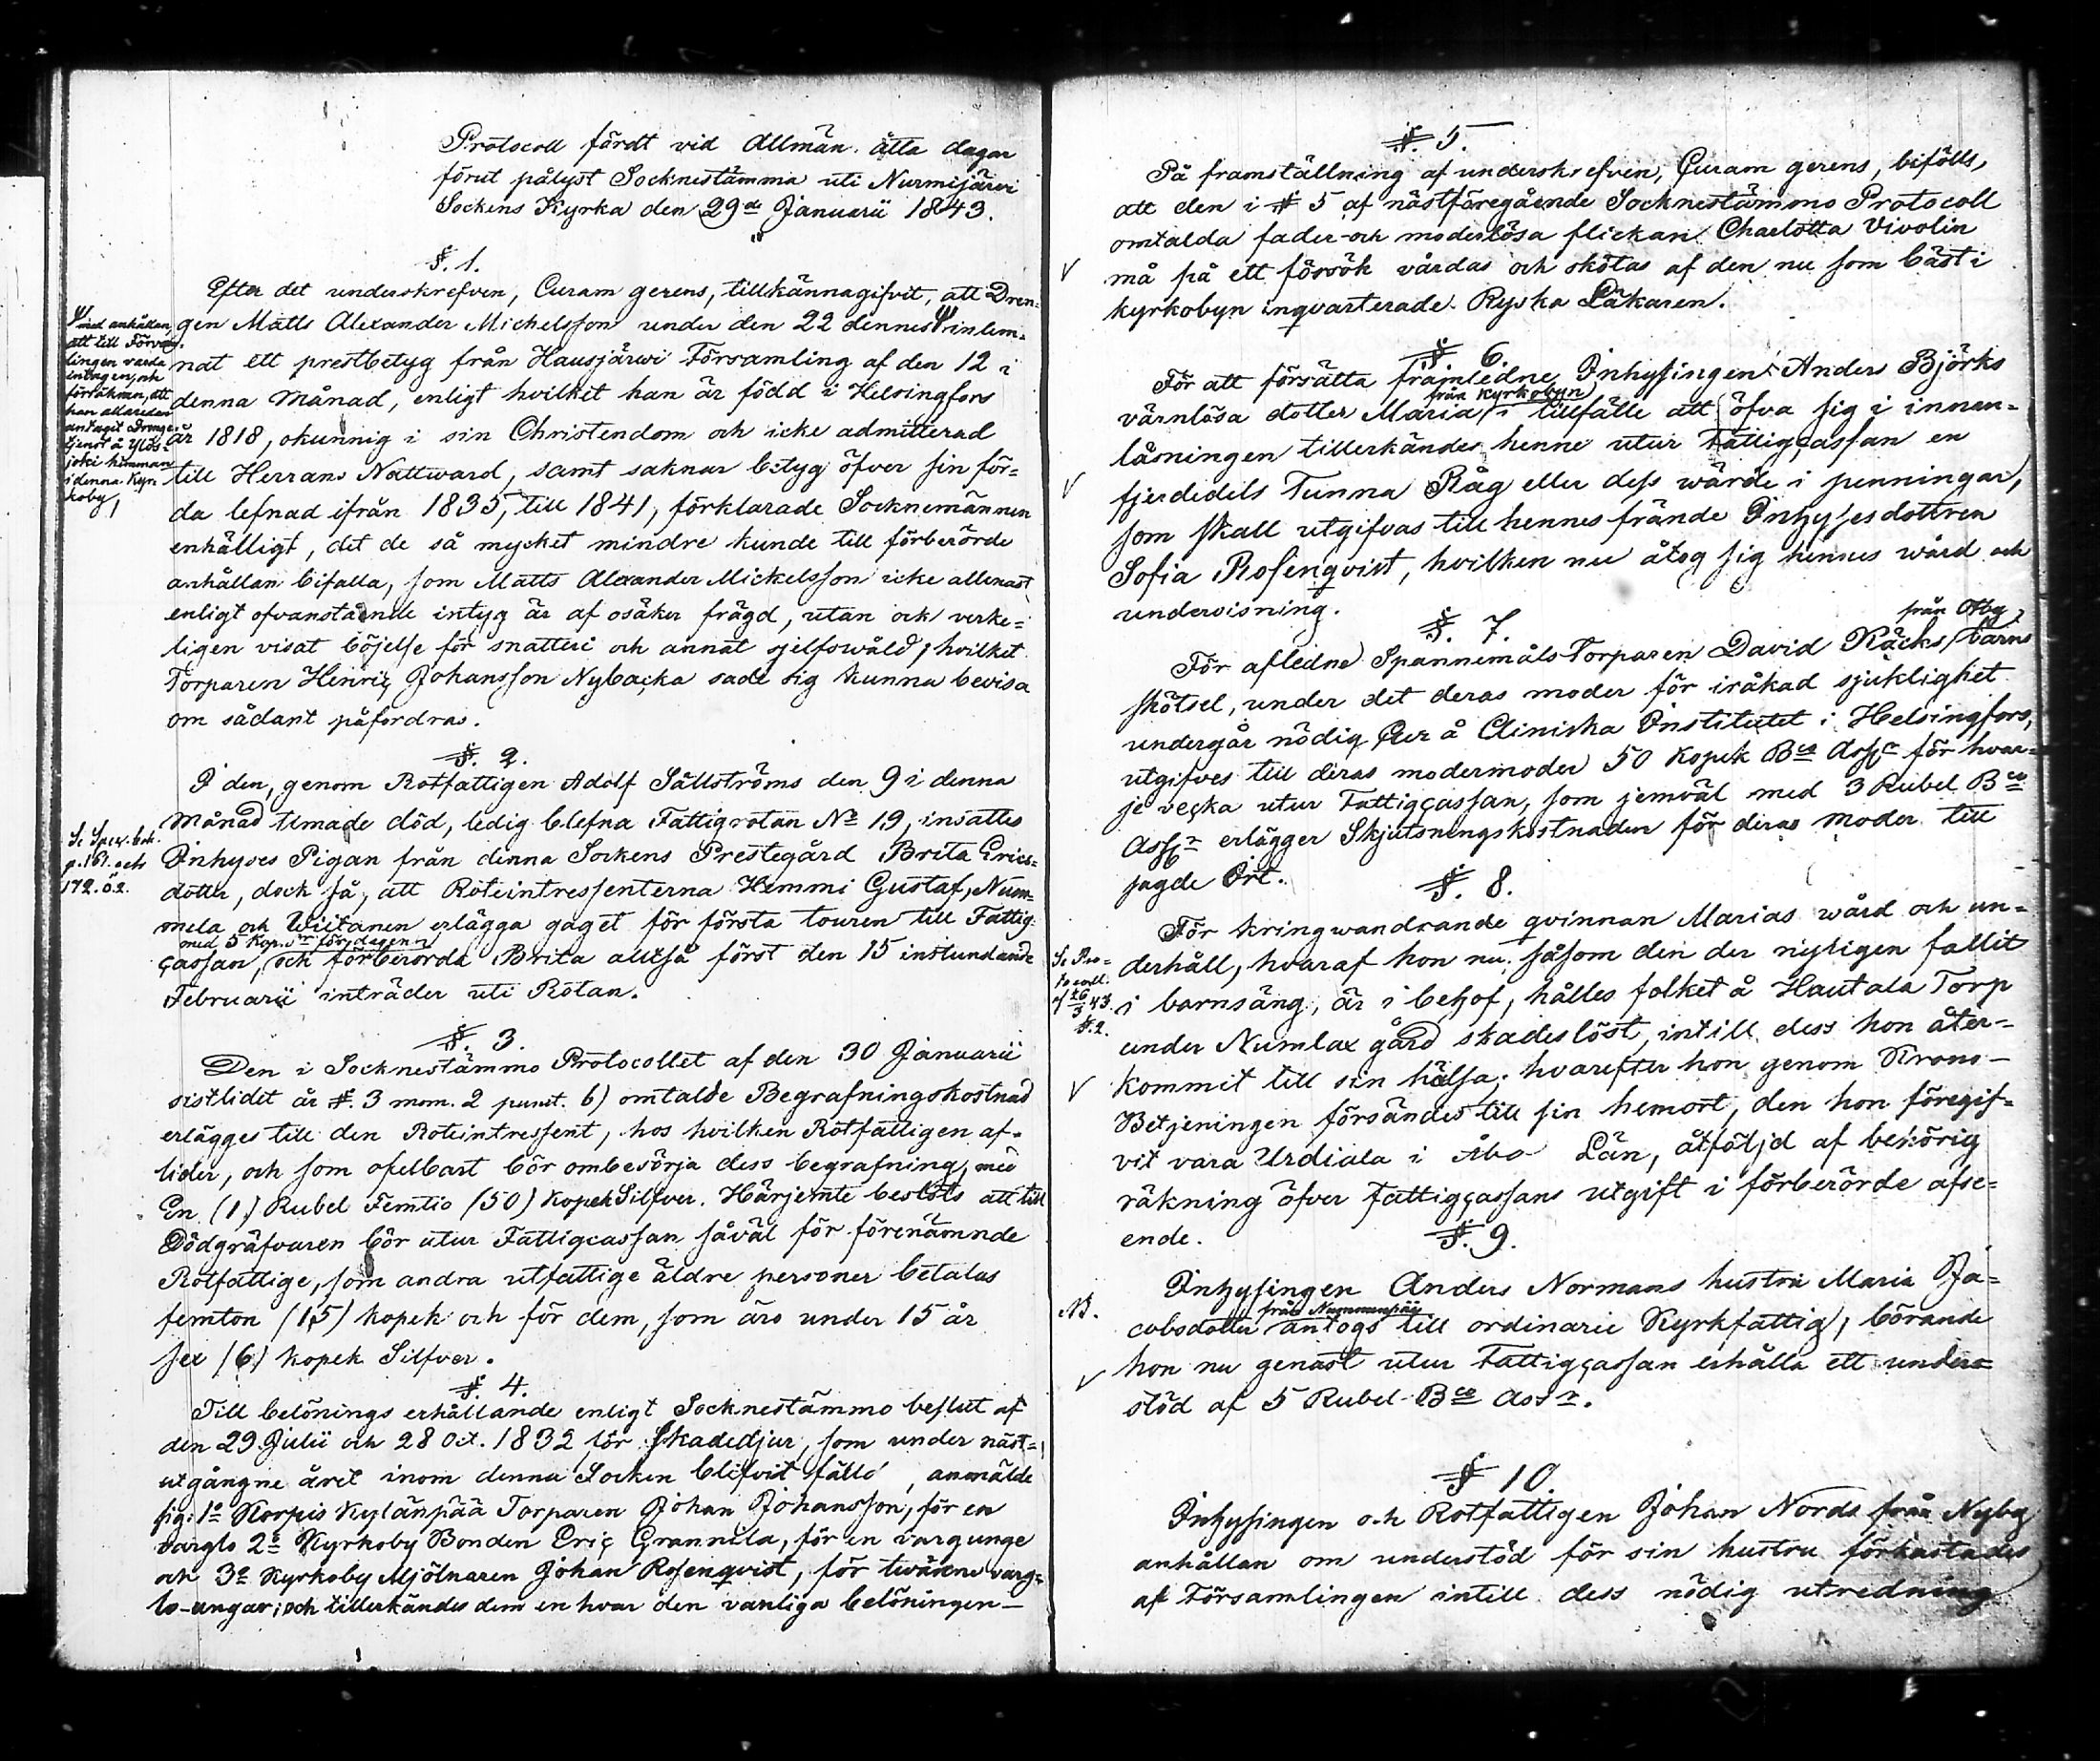 Protocoll fördt vid Allmän åtta dagar
förut pålyst Socknestämma uti Nurmijärvi
Sockens Kyrka den 29de Januarii 1843.
§. 1.
Efter det underskrefven, Curam gerens, tillkännagifvit, att Dren-
gen Matts Alexander Michelsson under den 22 dennes Ψ inlem-
nat ett prestbetyg från Hausjärwi Församling af den 12 i
denna Månad, enligt hvilket han är född i Helsingfors
år 1818, okunnig i sin Christendom och icke admitterad
till Herrans Nattward, samt saknar betyg öfver sin för-
da lefnad ifrån 1835, till 1841, förklarade Socknemännen
enhälligt, det de så mycket mindre kunde till förberörde
anhållan bifalla, som Matts Alexander Mickelsson icke allenast
enligt ofvanstående intyg är af osäker frägd, utan ock verke-
ligen visat böjelse för snatteri och annat sjelfswåld, hvilket
Torparen Henric Johansson Nybacka sade sig kunna bevisa
om sådant påfordras.
Ψ med anhållan,
att till Försam-
lingen varda
intagen, och
försäkran, att
han allaredan
antagit Drenge-
tjenst å Ylös-
joki hemman
i denna Kyr-
koby,
§. 2.
I den, genom Rotfattigen Adolf Sällströms den 9 i denna
Månad timade död, ledig blefna Fattigrotan No 19, insattes
Inhyses Pigan från denna Sockens Prestegård Brita Erics-
dotter, dock så, att Roteintressenterna Hemmi Gustaf, Num-
mela och Wiitanen erlägga gaget för första touren till Fattig-
med 5 Kop. Sr för dagen
cassan, och förberörda Brita alltså först den 15 instundande
Februarii inträder uti Rotan.
Se Spec. bok.
p. 161. och
172. ö2.
§. 3.
Den i Socknestämmo Protocollet af den 30 Januarii
sistlidet år §. 3 mom. 2 punct. 6) omtalde Begrafningskostnad
erlägges till den Roteintressent, hos hvilken Rotfattigen af-
lider, och som ofelbart bör ombesörja dess begrafning, med
En (1) Rubel Femtio (50) Kopek Silfver. Härjemte beslöts att till
Dödgräfvaren bör utur Fattigcassan såväl för förenämnde
Rotfattige, som andra utfattige äldre personer betalas
femton (15) kopek och för dem, som äro under 15 år
sex (6) kopek Silfver.
§. 4.
Till belönings erhållande enligt Socknestämmo beslut af
den 29 Julii och 28 Oct. 1832 för Skadedjur, som under näst-
utgångne året inom denna Socken blifvit fälld, anmälde
sig: 1o Korpis Kylänpää Torparen Johan Johansson, för en
varglo 2o Kyrkoby Bonden Eric Grannila, för en vargunge
och 3o Kyrkoby Mjölnaren Johan Rosenqvist, för twänne varg-
lo-ungar; och tillerkändes dem en hvar den vanliga belöningen—
§. 5.
På framställning af underskrefven, Curam gerens, bifölls,
att den i § 5 af nästföregående Socknestämmo Protocoll
omtalda fader- och moderlösa flickan Charlotta Vivolin
må på ett försök vårdas och skötas af den nu som bäst i
kyrkobyn inqvarterade Ryska Läkaren.
§. 6.
För att försätta framledne Inhysingen Anders Björks
från Kyrkobyn
värnlösa dotter Maria i tillfälle att öfva sig i innan-
läsningen tillerkändes henne utur Fattigcassan en
fjerdedels Tunna Råg eller dess wärde i penningar,
som skall utgifvas till hennes frände Inhysesdottren
Sofia Rosenqvist, hvilken nu åtog sig hennes wård och
undervisning.
§. 7.
från Otby
För aflednes Spannemåls Torparen David Räcks barns
skötsel, under det deras moder för iråkad sjuklighet
undergår nödig Cur å Cliniska Institutet i Helsingfors,
utgifves till deras modermoder 50 Kopek Bco Assr för hvar-
je vecka utur Fattigcassan, som jemväl med 3 Rubel Bco
Assr erlägger Skjutsningskostnaden för deras moder till
sagde Ort.
§. 8.
För kringwandrande qvinnan Marias wård och un-
derhåll, hvaraf hon nu, såsom den der nyligen fallit
i barnsäng, är i behof, hålles folket å Hautala Torp
under Numlax gård skadeslöst, intill dess hon åter-
kommit till sin hälsa, hvarefter hon genom Krono-
Betjeningen försändes till sin hemort, den hon föregif-
vit vara Urdiala i Åbo Län, åtföljd af behörig
räkning öfver Fattigcassans utgift i förberörde afse-
ende.
Se Pro-
tocoll.
af 26/3 43.
§. 2.
§. 9.
Inhysingen Anders Normans hustru Maria Ja-
från Nummenpää
cobsdotter antogs till ordinarie Kyrkfattig, börande
hon nu genast utur Fattigcassan erhålla ett under-
stöd af 5 Rubel Bco Assr.
NB.
§ 10.
Inhysingen och Rotfattigen Johan Nords från Nyby
anhållan om understöd för sin hustru förkastades
af Församlingen intill dess nödig utredning